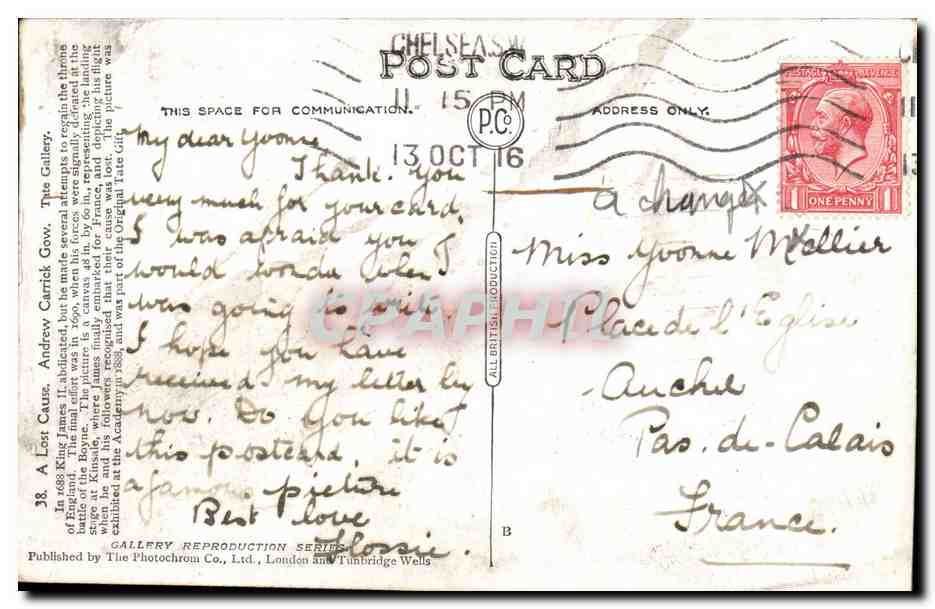 CHELSEA S.W.
11.15 PM
13 OCT 16
POST CARD
THIS SPACE FOR COMMUNICATION.
P.C.o
ADDRESS ONLY.
POSTAGE REVENUE
1 ONE PENNY 1
38. A Lost Cause. Andrew Carrick Gow. Tate Gallery.
In 1688 King James II. abdicated, but he made several attempts to regain the throne
of England. The final effort was in 1690, when his forces were signally defeated at the
battle of the Boyne. The picture is a canvas 48 in. by 60 in., representing the landing
stage at Kinsale, where James finally embarked for France, and depicting his flight
when he and his followers recognised that their cause was lost. The picture was
exhibited at the Academy in 1888, and was part of the Original Tate Gift.
My dear Yvonne
Thank you
very much for your card.
I was afraid you
would wonder when I
was going to write.
I hope you have
received my letter by
now. Do you like
this postcard, it is
a famous picture
Best love
Flossie.
ALL BRITISH PRODUCTION
B
à changer
Miss Yvonne Mellier
Place de l'Eglise
Auchel
Pas-de-Calais
France.
GALLERY REPRODUCTION SERIES
Published by The Photochrom Co., Ltd., London and Tunbridge Wells
CPAPHIL